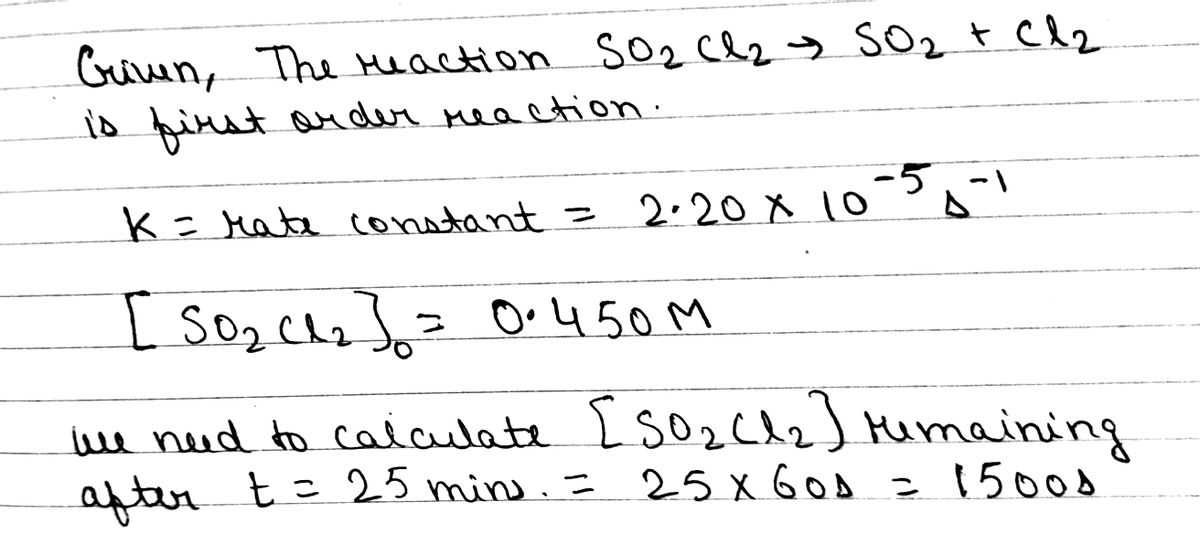 Given, The reaction SO₂Cl₂ → SO₂ + Cl₂
is first order reaction.
K = rate constant = 2.20 × 10⁻⁵ s⁻¹
[SO₂Cl₂]₀ = 0.450 M
we need to calculate [SO₂Cl₂] remaining
after t = 25 mins. = 25 × 60s = 1500s